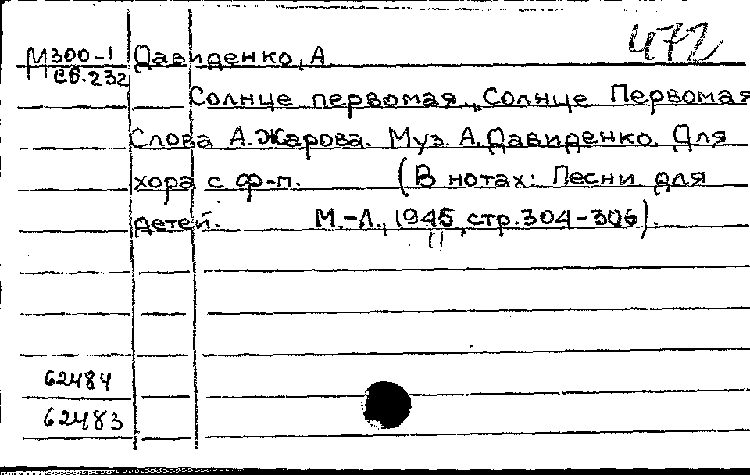 472
М300-1 Давиденко, А.
сб.232
Солнце первомая „Солнце Первомая
Слова А. Жарова. Муз. А. Давиденко. Для
хора с ф-п. (В нотах: Песни для
детей. М.-Л., 1945, стр. 304-306).
62484
62483